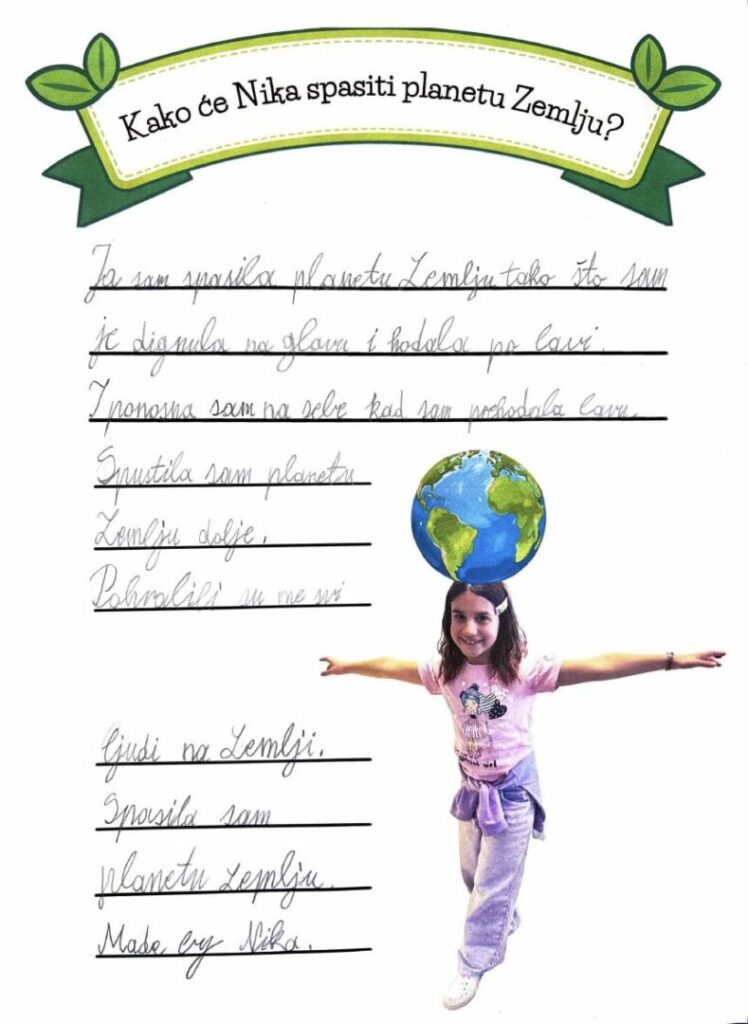 Kako će Nika spasiti planetu Zemlju?
Ja sam spasila planetu Zemlju tako što sam
je dignula na glavu i hodala po lavi.
I ponosna sam na sebe kad sam prehodala lavu.
Spustila sam planetu
Zemlju dolje.
Pohvalili su me svi
ljudi na Zemlji.
Spasila sam
planetu Zemlju.
Made by Nika.